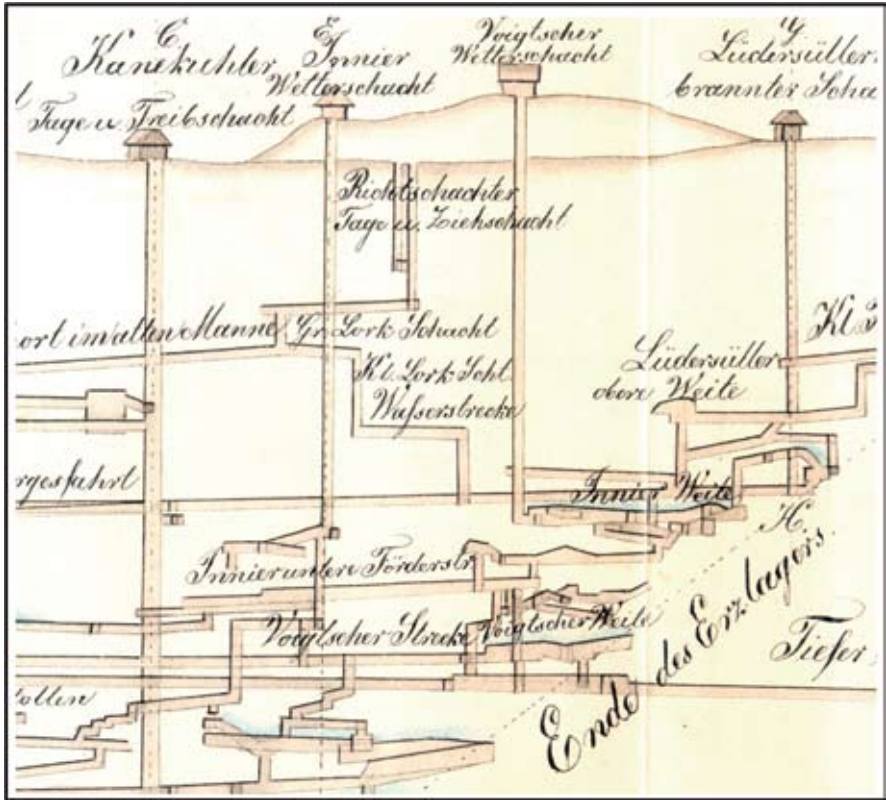 C.
Kanekuhler
Tage u. Treibschacht
E.
Innier
Wetterschacht
Voigtscher
Wetterschacht
Lüdersüller
brannter Scha
Richtschachter
Tage u. Ziehschacht
ort im alten Manne
Gr. Lork Schacht
Kl. Lork Scht.
Wasserstrecke
Lüdersüller
obere Weite
Kl.
rgesfahrt
Innier Weite
H.
Innier untere Förderstr.
Voigtscher Strecke
Voigtscher Weite
Ende des Erzlagers.
Tiefer
tollen